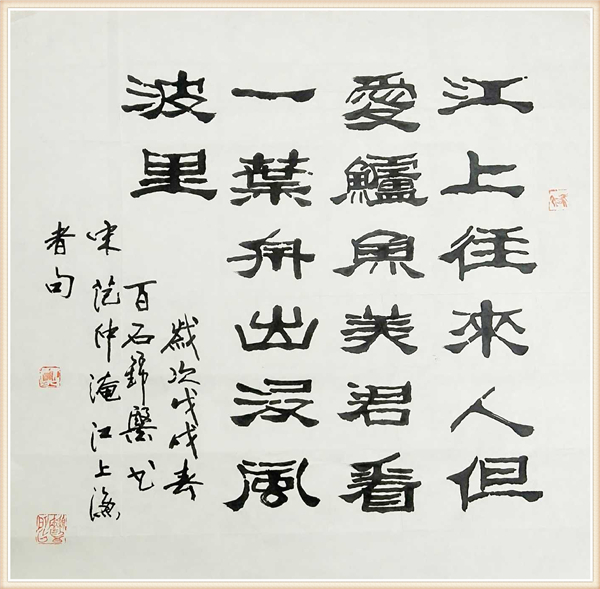 江上往來人但
愛鱸魚美君看
一葉舟出没風
波里
歲次戊戌春
百石 书
宋范仲淹江上渔
者句